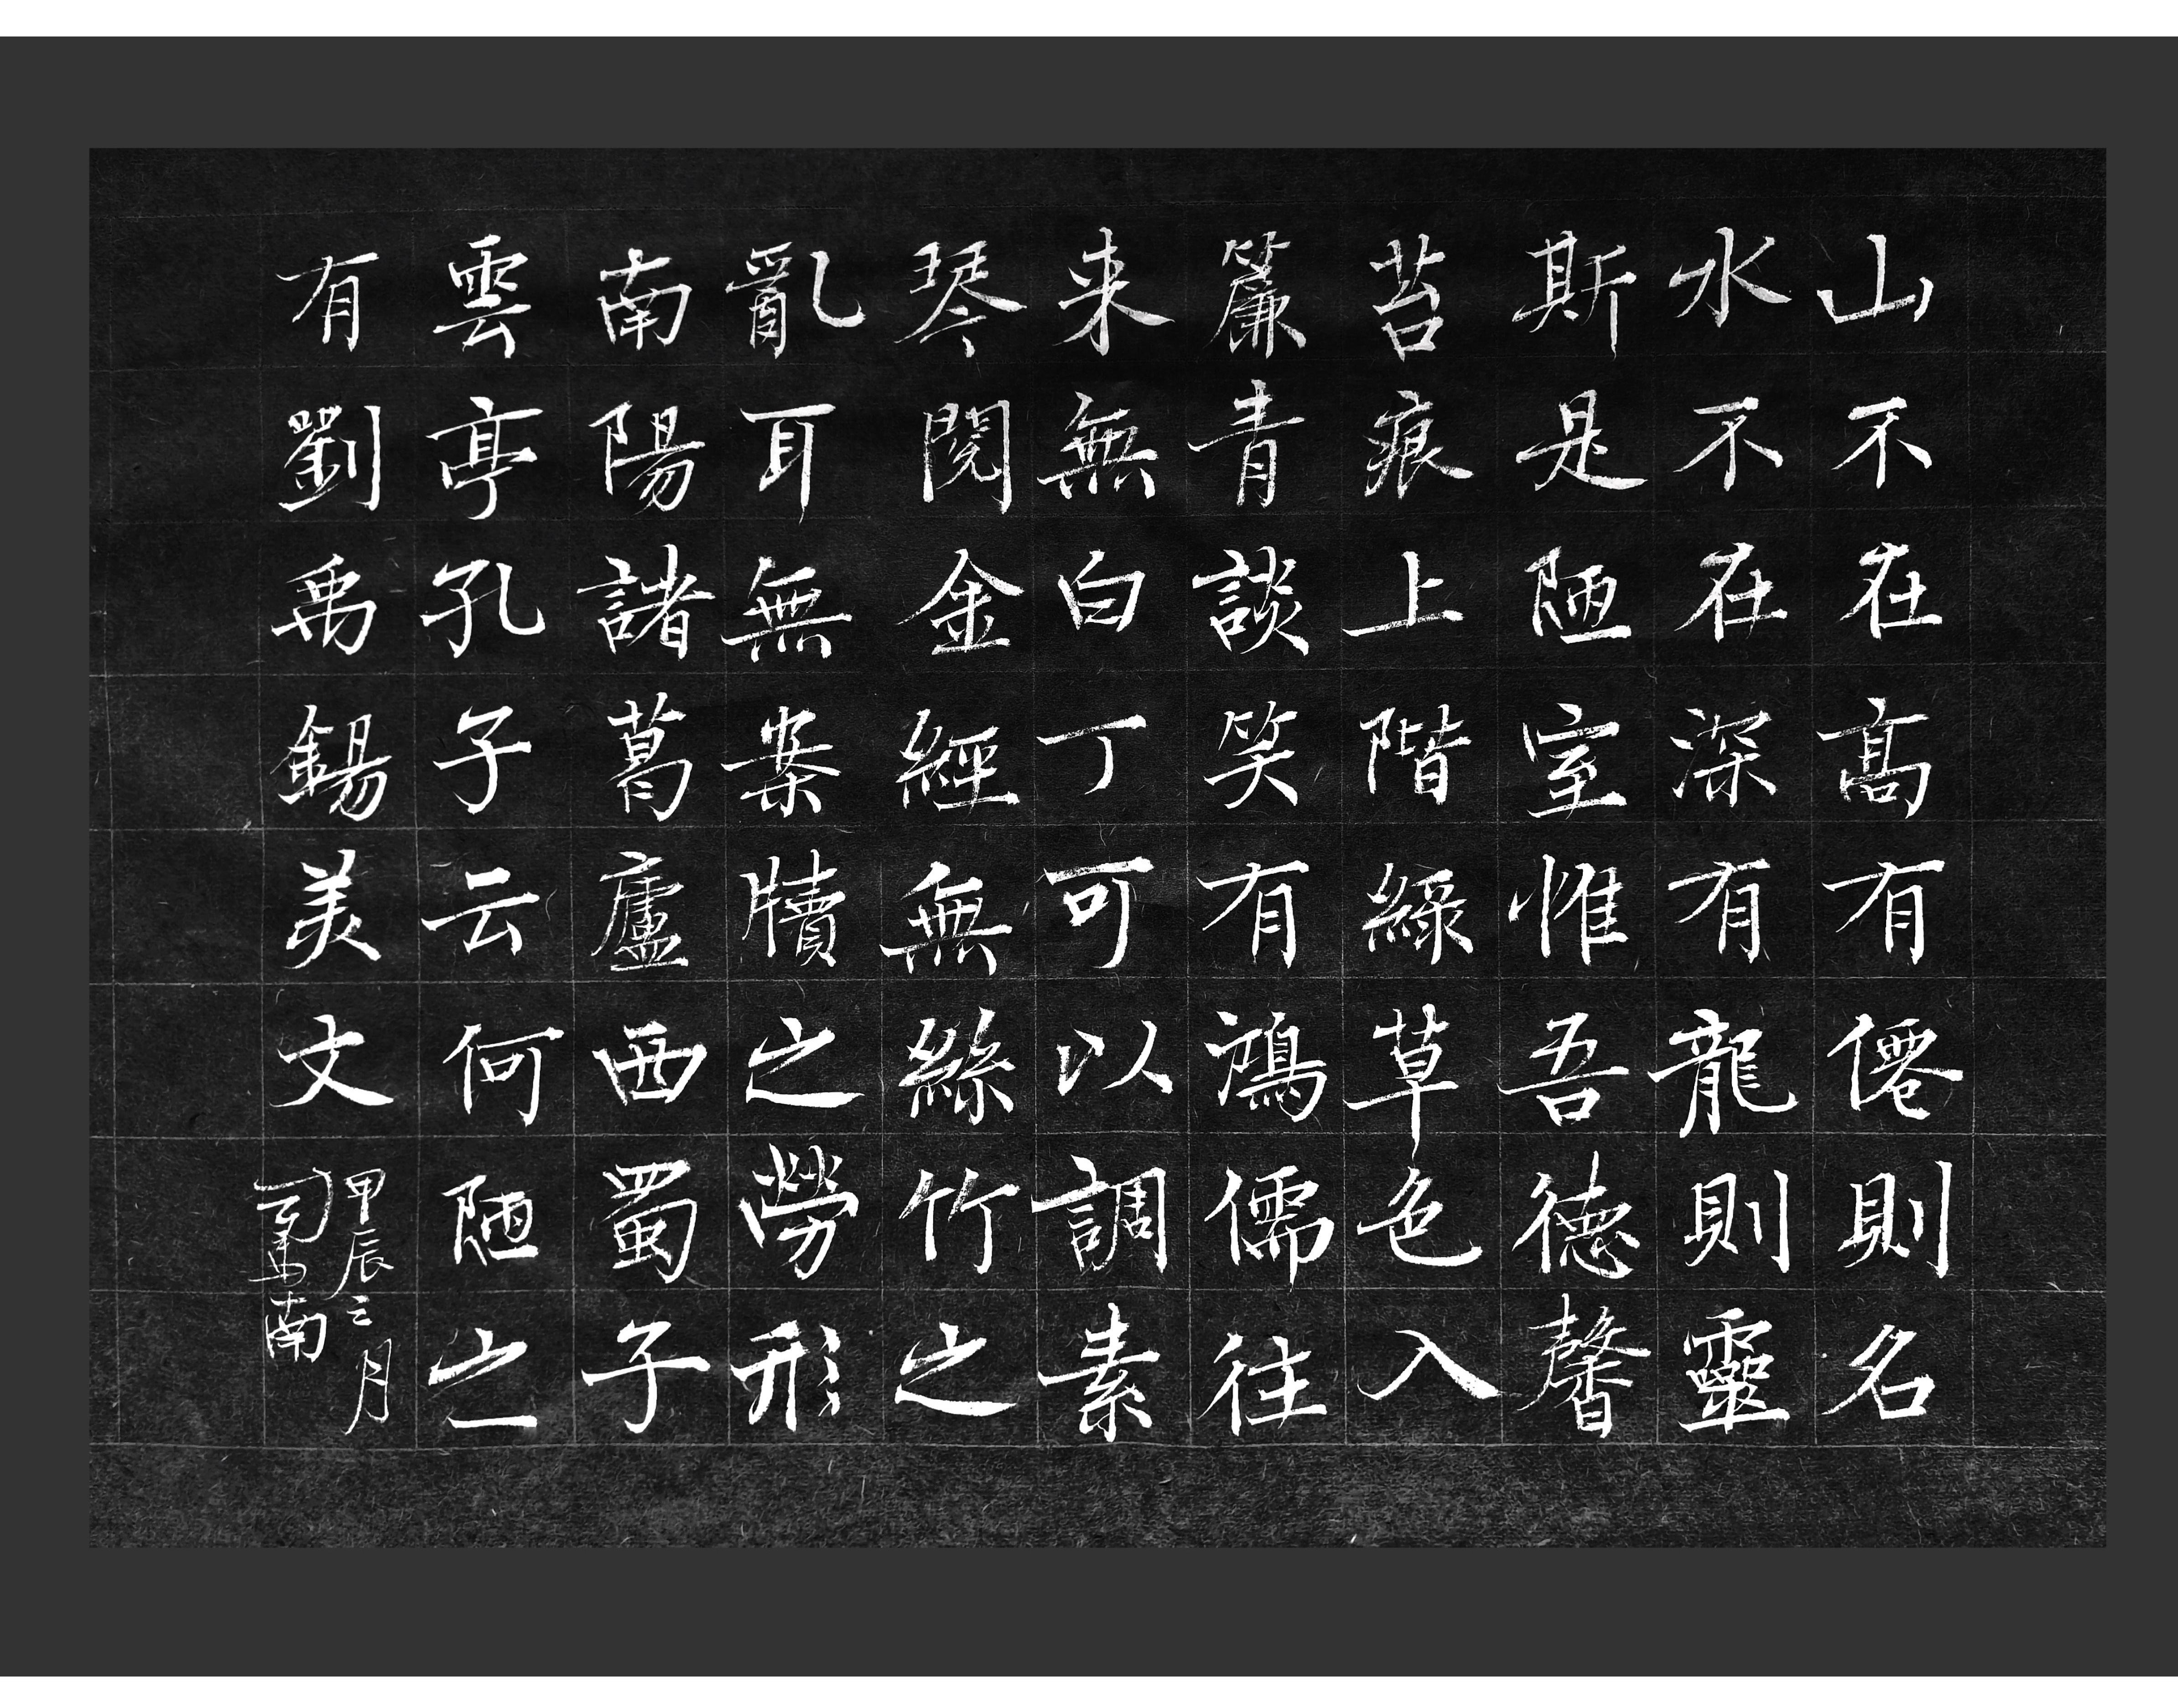 山不在高有僊則名
水不在深有龍則靈
斯是陋室惟吾德馨
苔痕上階綠草色入
簾青談笑有鴻儒往
来無白丁可以調素
琴閱金經無絲竹之
亂耳無案牘之勞形
南陽諸葛廬西蜀子
雲亭孔子云何陋之
有劉禹錫美文
甲辰三月
司馬南